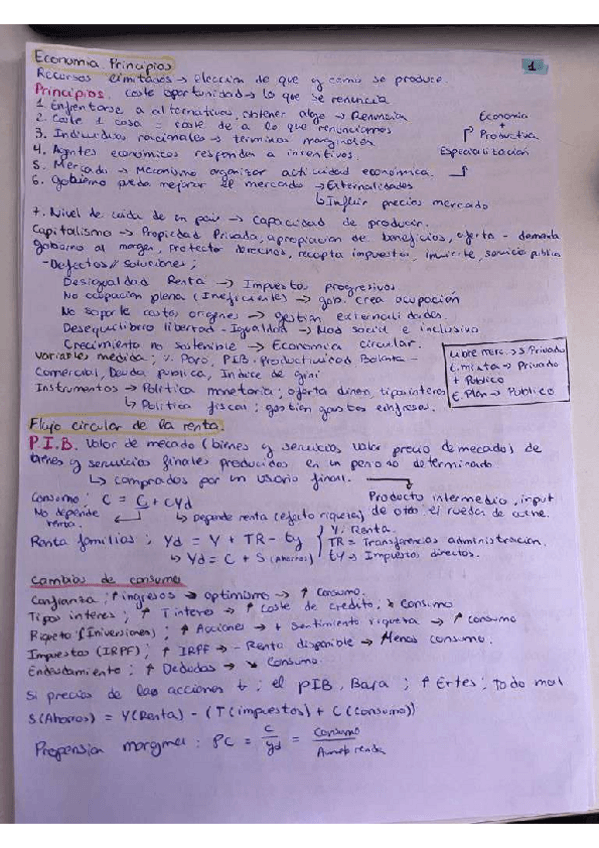 Economia Principios
1
Recursos limitados → Elección de que y como se produce.
Principios. coste oportunidad → lo que se renuncia
1. Enfentarse a alternativas, obtener algo → Renuncia
2. Coste 1 cosa = coste de a lo que renunciamos
3. Individuos racionales → terminos marginales
4. Agentes económicos responden a insentivos.
5. Mercado → Mecanismo organizar actividad económica.
Economia
+
Productiva
Especialización
6. Gobierno puede mejorar el mercado → Externalidades
↳ Influir precios mercado
7. Nivel de vida de un país → Capacidad de producir.
Capitalismo → Propiedad Privada, apropiacion de beneficios, oferta - demanda
gobierno al margen, protector derechos, recapta impuestos, invierte, servicio publico
- Defectos / soluciones;
Desigualdad Renta → Impuestos progresivos
No ocupación plena (Ineficientes) → gob. crea ocupación
No soporte costes origenes → gestión externalidades.
Desequilibrio libertad - Igualdad → Mod social e inclusivo
Crecimiento no sostenible → Economia circular.
Variables medida; % Paro, PIB, Productividad Balanza -
Comercial, Deuda publica, Indice de gini
Instrumentos → Politica monetaria; oferta diner, tipos interes
↳ Politica fiscal; gestion gastos e ingresos.
Libre merc. → Privado
E. mixta → Privado
+ Publico
E. Plan → Publico
Flujo circular de la renta.
P.I.B. Valor de mecado (bienes y servicios valor precio de mecado) de
bienes y servicios finales producidos en un periodo determinado
↳ comprados por un usario final.
Producto intermedio, input
de otro. ej rueda de coche.
Consumo: C = C + cYd
No depende renta.
↳ Depende renta (efecto riqueza)
Renta familias; Yd = Y + TR - ty
Y: Renta.
TR = Transferencias administración.
tY = Impuestos directos.
↳ Yd = C + S (Ahorros)
Cambios de consumo
Confianza; ↑ ingresos → optimismo → ↑ Consumo.
Tipos interes; ↑ T interes → ↑ coste de credito; ↘ Consumo
Riqueza (Inversiones); ↑ Acciones → + sentimiento riqueza → ↑ consumo
Impuestos (IRPF); ↑ IRPF → - Renta disponible → Menos consumo.
Endeudamiento; ↑ Deudas → ↘ Consumo.
Si precios de las acciones ↓; el PIB, Baja; ↑ Ertes; Todo mal
S(Ahorros) = Y(Renta) - (T(impuestos) + C(Consumo))
Propension marginal: PC = C / Yd = Consumo / Aumento renta